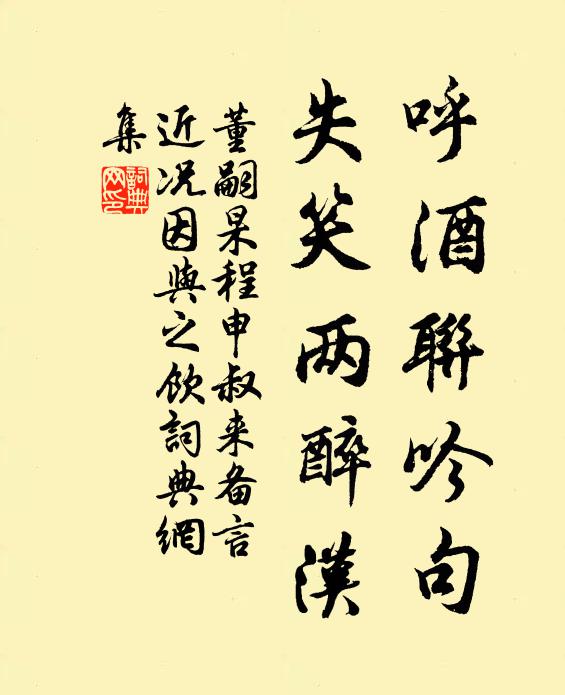 呼酒聯吟句
失笑两醉漢
董嗣杲程申叔来备言
近况因與之飲詞典網
集
詞典
网印